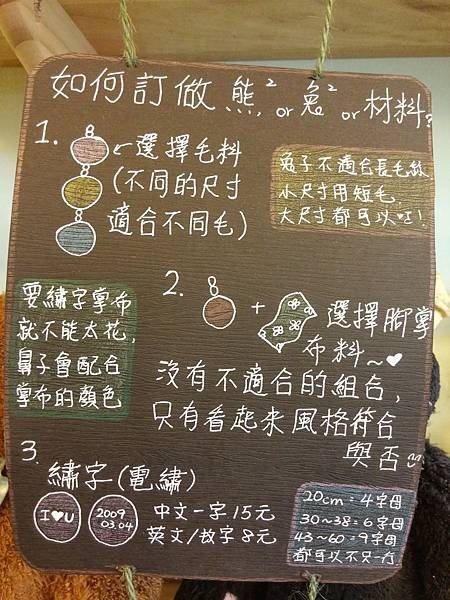 如何訂做熊² or 兔² or 材料?
1. ←選擇毛料
(不同的尺寸
適合不同毛)
兔子不適合長毛絲
小尺寸用短毛,
大尺寸都可以哦!
要繡字掌布
就不能太花,
鼻子會配合
掌布的顏色
2. + 選擇腳掌
布料~♥
沒有不適合的組合,
只有看起來風格符合
與否
3. 繡字(電繡)
I♥U
2009
03.04
中文一字15元
英文/數字8元
20cm=4字母
30~38=6字母
43~60=9字母
都可以不只一行